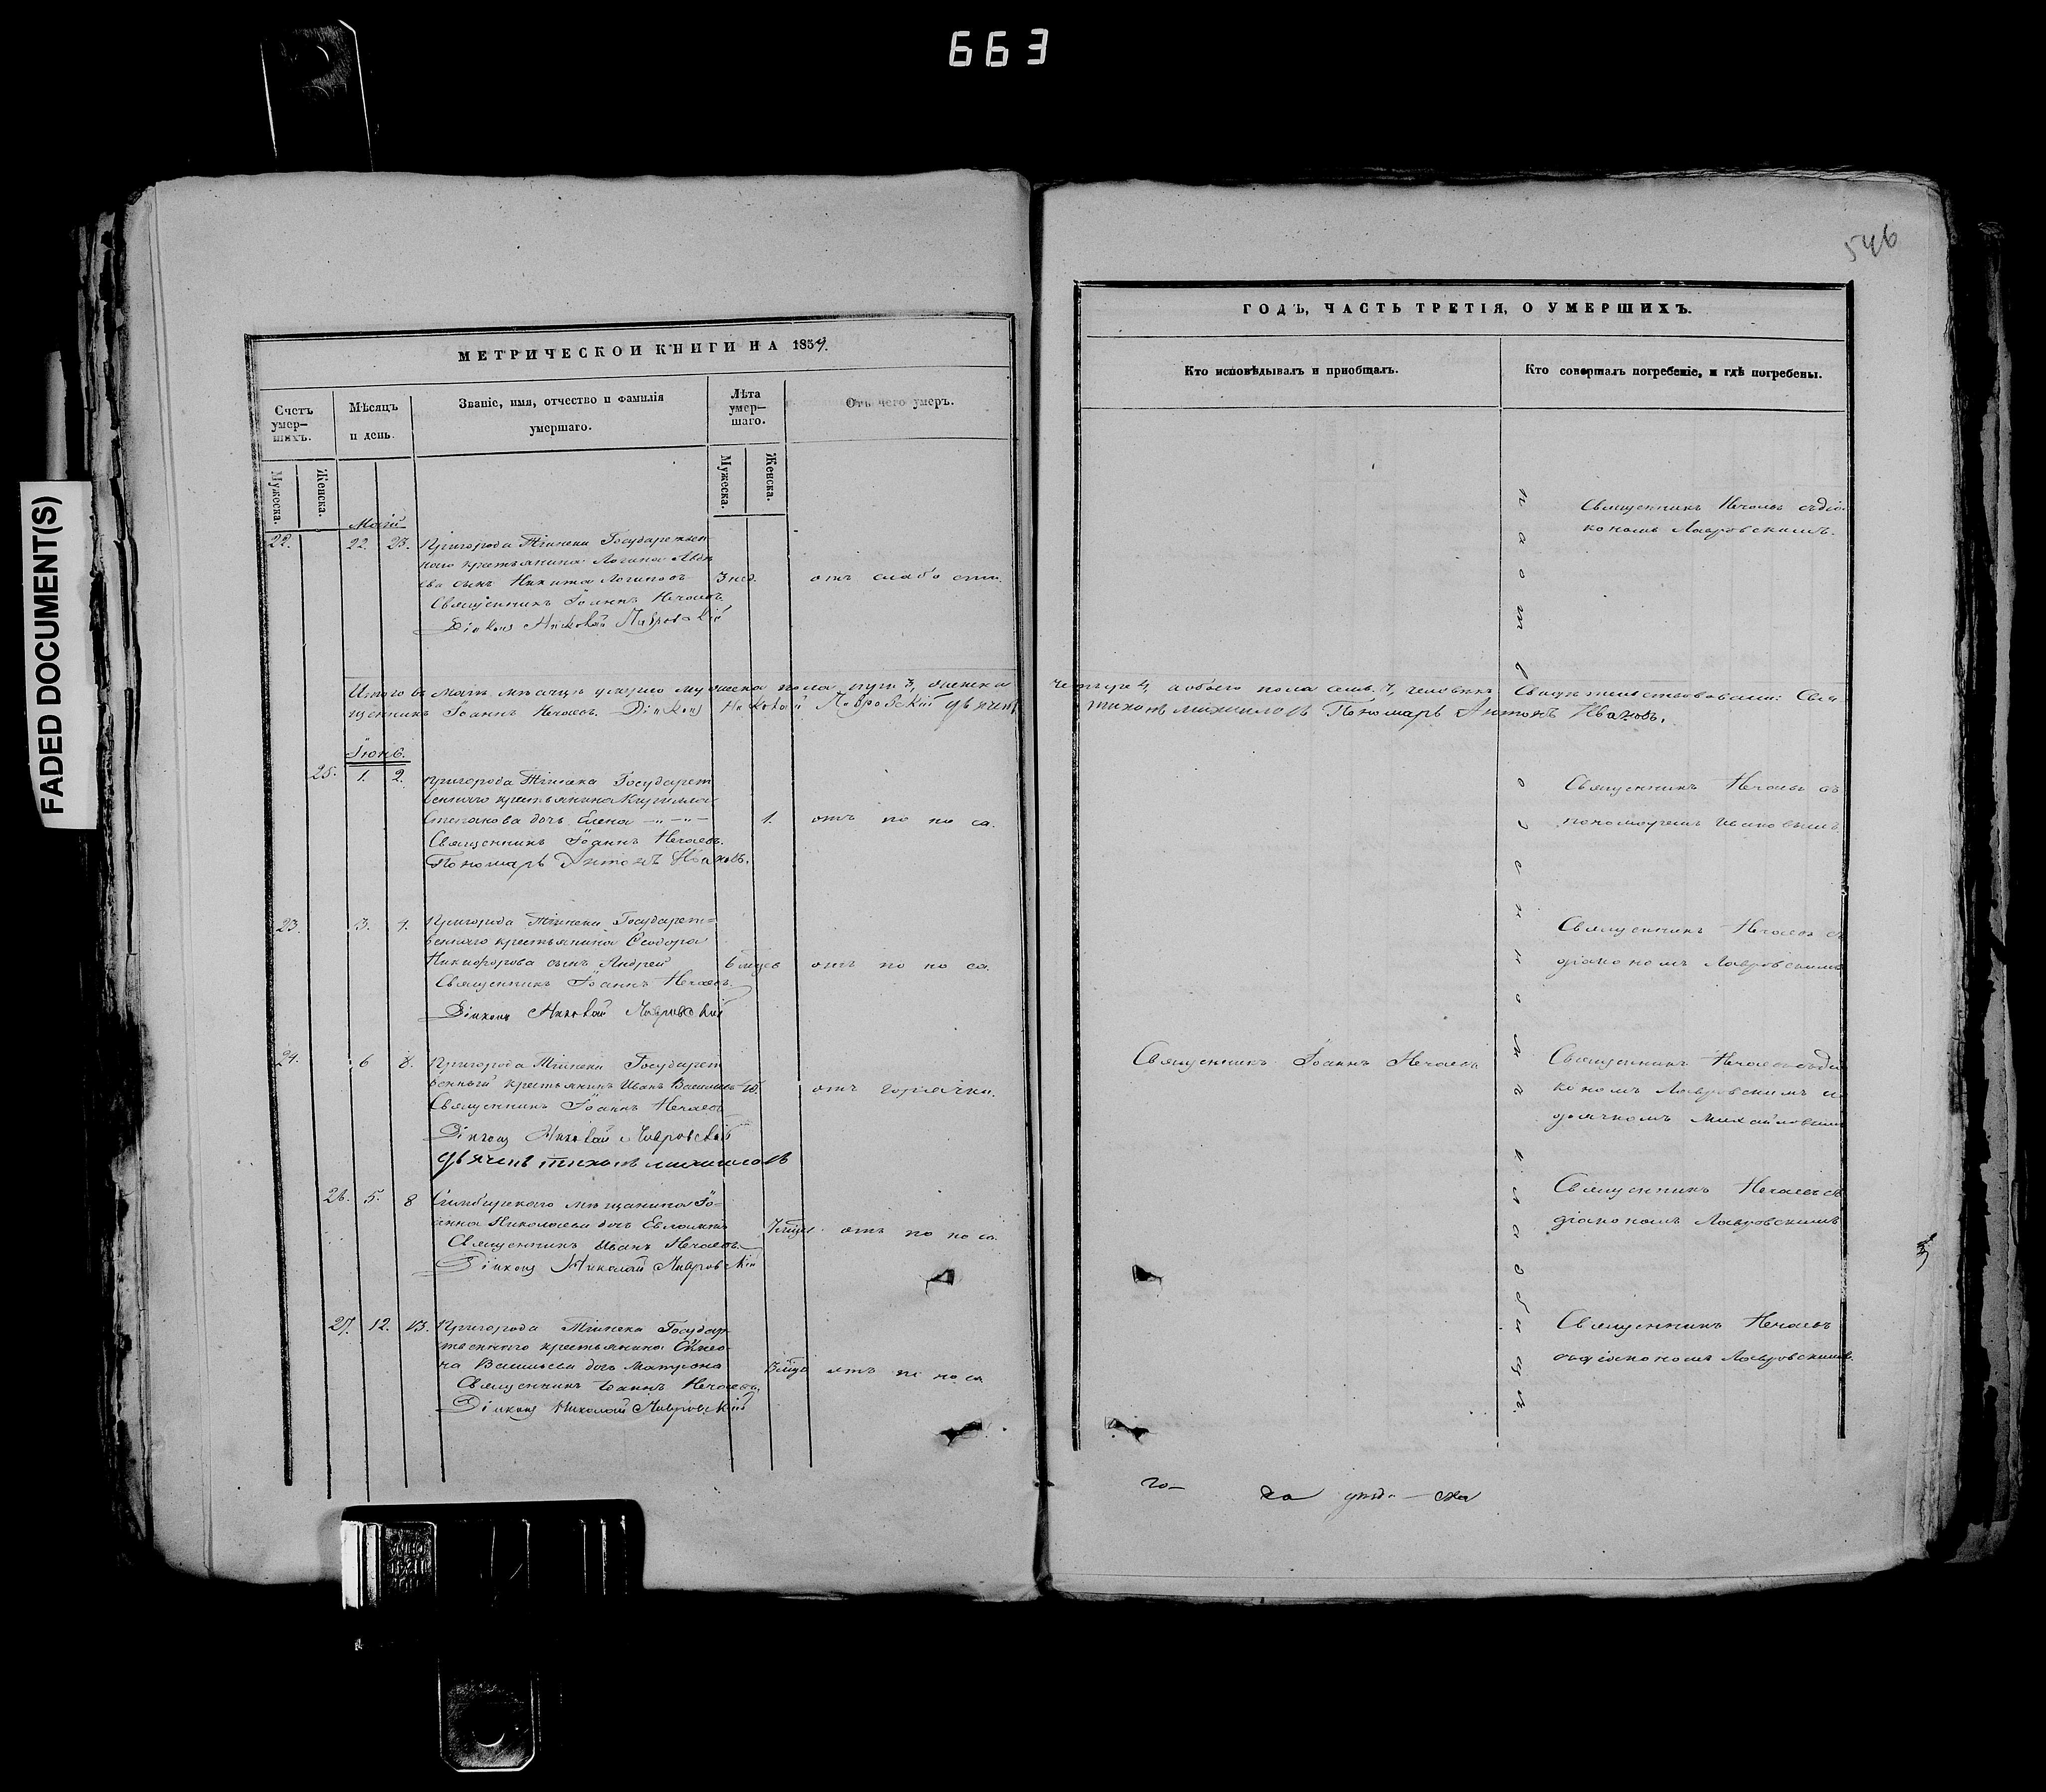 663
FADED DOCUMENT(S)
МЕТРИЧЕСКОЙ КНИГИ НА 1859.
Счетъ умер-шихъ.
Мѣсяцъ и день.
Званіе, имя, отчество и фамилія умершаго.
Лѣта умер-шаго.
Отъ чего умеръ.
Мужеска.
Женска.
Мужеска.
Женска.
Май
22. 22. 23. Пригорода Тіинска Государствен
наго крестьянина Логина
сынъ Никита Логиновъ 3 нед. отъ слабости.
Священникъ Іоаннъ Нечаевъ
Діаконъ Николай Лавровскій
Итого въ маѣ мѣсяцѣ умерло мужеска пола три 3, женска
щенникъ Іоаннъ Нечаевъ. Діаконъ Николай Лавровскій
Іюнь.
25. 1. 2. Пригорода Тіинска Государст
веннаго крестьянина Кирилла
Степанова дочь Елена 1. отъ поноса.
Священникъ Іоаннъ Нечаевъ.
Пономарь Антонъ Ивановъ.
23. 3. 4. Пригорода Тіинска Государст=
веннаго крестьянина Ѳеодора
Никифорова сынъ Андрей 6 мцев отъ поноса.
Священникъ Іоаннъ Нечаевъ.
Діаконъ Николай Лавровскій
24. 6 8. Пригорода Тіинска Государст
венный крестьянинъ Иванъ Васильевъ отъ горячки.
Священникъ Іоаннъ Нечаевъ
Діаконъ Николай Лавровскій
дьячекъ тихонъ михайловъ
26. 5. 8 Симбирскаго мѣщанина Іо-
анна Николаева дочь отъ поноса
Священникъ Иванъ Нечаевъ
Діаконъ Николай Лавровскій
27. 12. 13. Пригорода Тіинска Государ
ственнаго крестьянина
Васильева дочь Матрона отъ поноса
Священникъ Іоаннъ Нечаевъ
Діаконъ Николай Лавровскій
546
ГОДЪ, ЧАСТЬ ТРЕТІЯ, О УМЕРШИХЪ.
Кто исповѣдывалъ и пріобщалъ.
Кто совершалъ погребеніе, и гдѣ погребены.
Священникъ Нечаевъ съ діа
кономъ Лавровскимъ.
четыре 4, а обоего пола семь 7, человѣкъ Свидѣтельствовали: Свя
тихонъ михайловъ Пономарь Антонъ Ивановъ.
Священникъ Нечаевъ съ
пономаремъ Ивановымъ
Священникъ Нечаевъ съ
діакономъ Лавровскимъ
Священникъ Іоаннъ Нечаевъ
Священникъ Нечаевъ съ діа
кономъ Лавровскимъ и
дьячкомъ Михайловымъ
Священникъ Нечаевъ съ
діакономъ Лавровскимъ
Священникъ Нечаевъ
съ діакономъ Лавровскимъ.
на общемъ кладбищѣ.